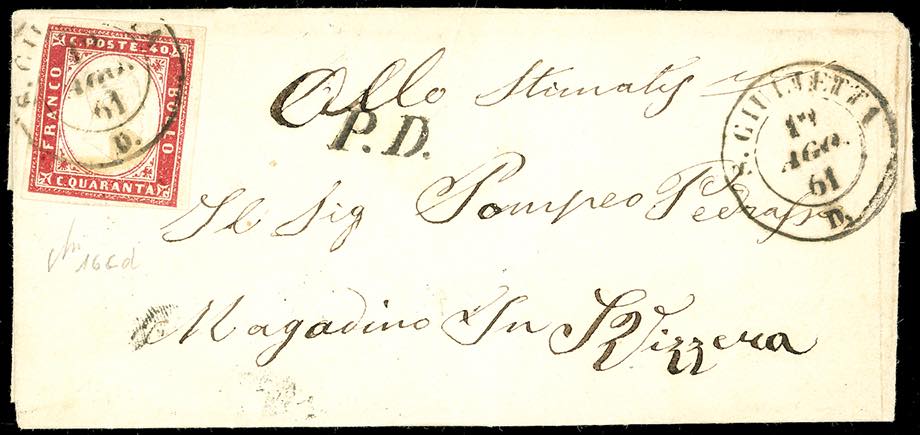 C. POSTE. 40
FRANCO
BOLLO
C. QUARANTA
AGO.
61
D.
Allo Stimatis
P.D.
S. GIULIETTA
12
AGO.
61
D.
Il Sig Pompeo
Magadino In Svizzera
166d